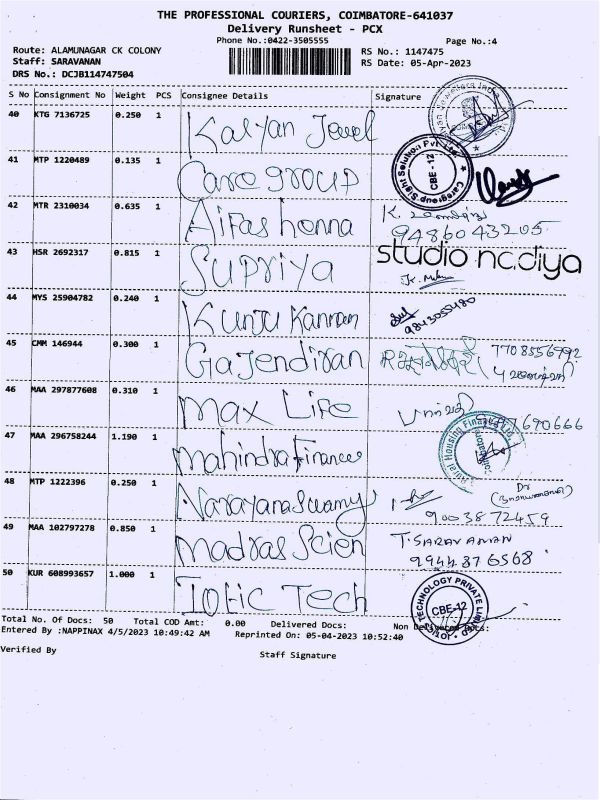 THE PROFESSIONAL COURIERS, COIMBATORE-641037
Delivery Runsheet - PCX
Phone No.:0422-3505555
Page No.:4
Route: ALAMUNAGAR CK COLONY
RS No.: 1147475
Staff: SARAVANAN
RS Date: 05-Apr-2023
DRS No.: DCJB114747504
S No Consignment No Weight PCS Consignee Details Signature
40 KTG 7136725 0.250 1 Kalyan Jewel
41 MTP 1220489 0.135 1 Care group
Caregroup Sight Solution Pvt. Ltd.
CBE-12
42 MTR 2310034 0.635 1 Aifas henna K.
9486043205
43 HSR 2692317 0.815 1 Supriya studio nc.diya
44 MYS 25904782 0.240 1 Kunju Kannan
9843055480
45 CMM 146944 0.300 1 Gajendiran 7708556992
46 MAA 297877608 0.310 1 Max Life
690666
47 MAA 296758244 1.190 1 Mahindra Finance
Rural Housing Finance Ltd.
48 MTP 1222396 0.250 1 Narayanaswamy Dr
9003872459
49 MAA 102797278 0.850 1 Madras Scien T. SARAVANAN
9944876568
50 KUR 608993657 1.000 1 Iotic Tech
IOTIC TECHNOLOGY PRIVATE LIMITED
CBE-12
Total No. Of Docs: 50 Total COD Amt: 0.00 Delivered Docs: Non Delivered Docs:
Entered By :NAPPINAX 4/5/2023 10:49:42 AM Reprinted On: 05-04-2023 10:52:40
Verified By
Staff Signature